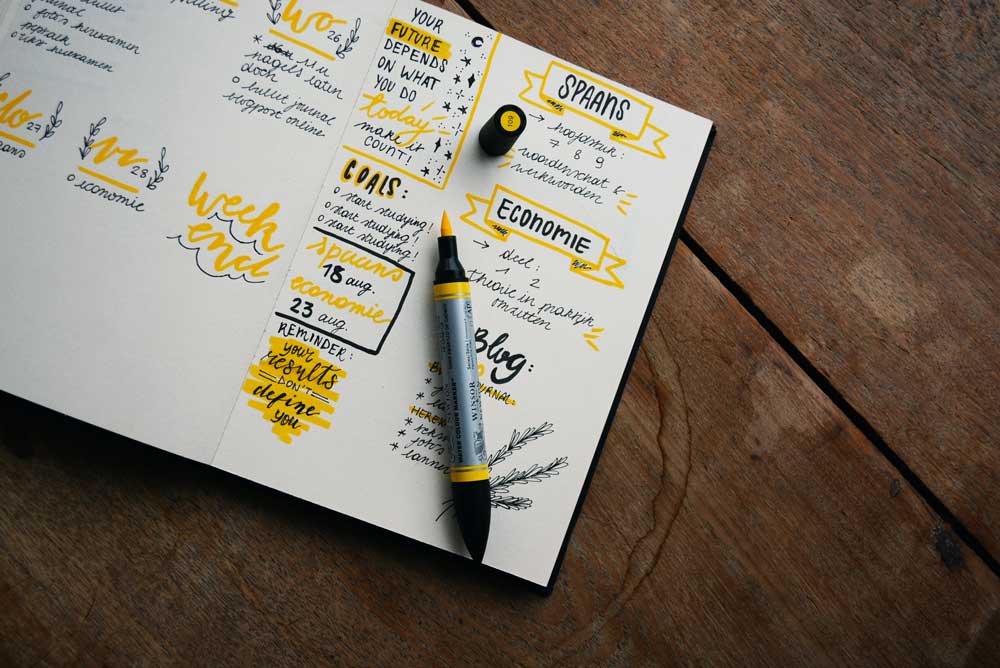 journal
o foto's herexamen
o herexamen
Wo
26
nagels laten
doen
o bullet journal
blogpost online
do
27
vr
28
o economie
week
end
YOUR
FUTURE
DEPENDS
ON WHAT
YOU DO
today
make it
COUNT!
GOALS:
o start studying!
o start studying!
o start studying!
spaans
18 aug.
economie
23 aug.
REMINDER:
your
results
DON'T
define
you
109
SPAANS
→ hoofdstuk:
7 8 9
woordenschat &
werkwoorden
ECONOMIE
→ deel:
1 2
theorie in praktijk
omzetten
Blog:
JOURNAL:
WATER COLOUR MARKER
WINSOR